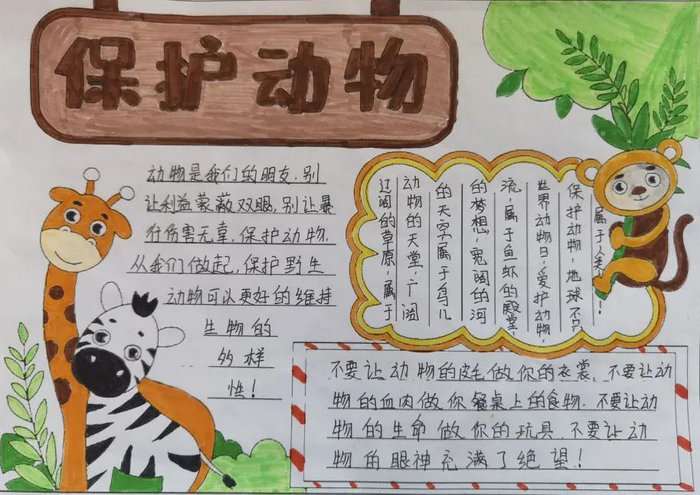 保护动物
动物是我们的朋友.别
让利益蒙蔽双眼,别让暴
行伤害无辜.保护动物.
从我们做起,保护野生
动物可以更好的维持
生物的
多样
性!
辽阔的草原,属于
动物的天堂,广阔
的天空属于鸟儿
的梦想,宽阔的河
流,属于鱼虾的殿堂,
世界动物日,爱护动物,
保护动物,地球不只
属于人类!
不要让动物的皮毛做你的衣裳,不要让动
物的血肉做你餐桌上的食物.不要让动
物的生命做你的玩具.不要让动
物的眼神充满了绝望!